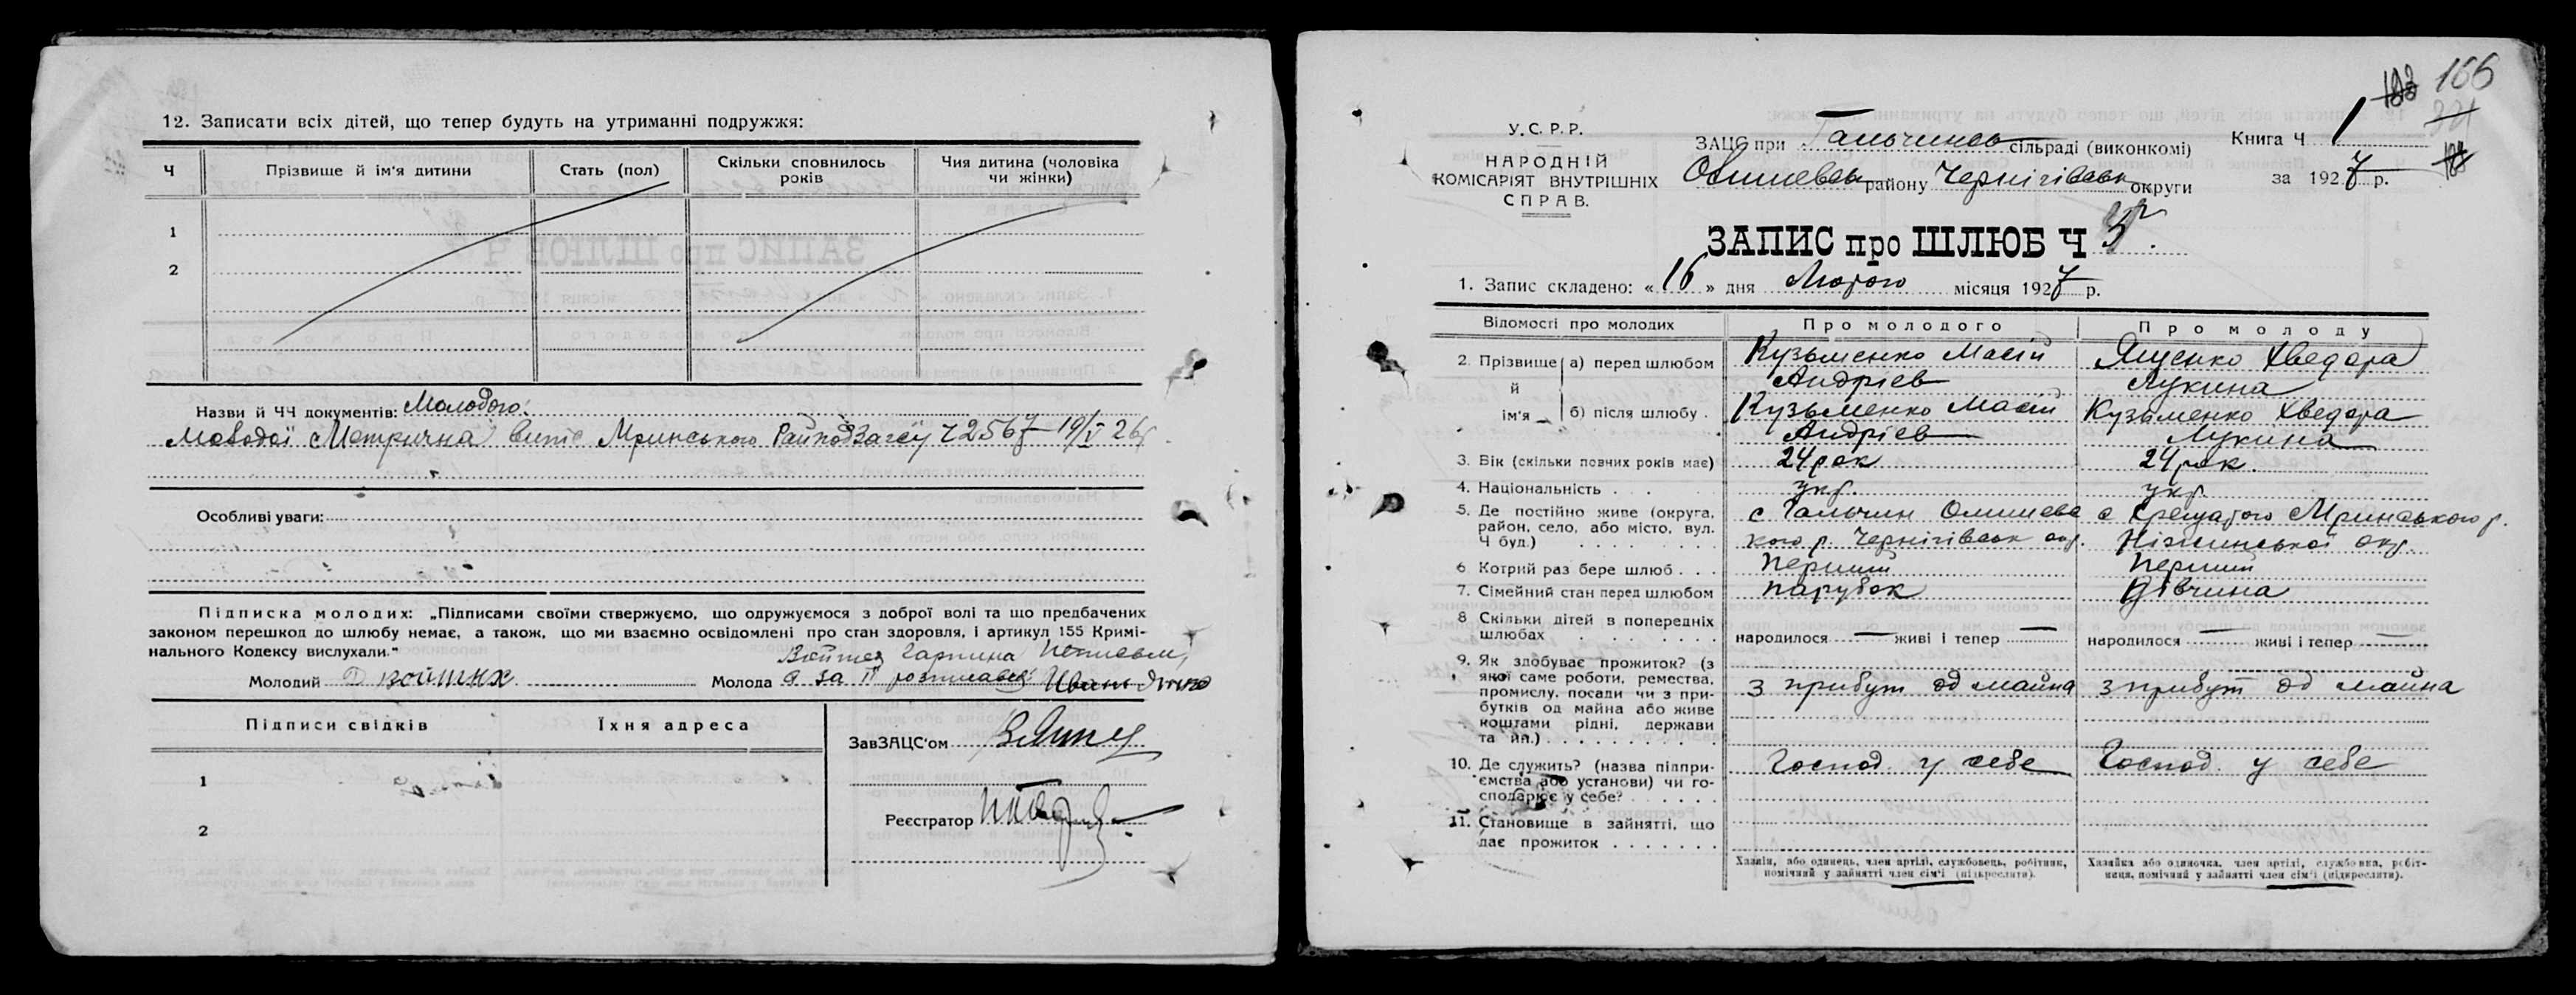 12. Записати всіх дітей, що тепер будуть на утриманні подружжя:
Ч
Прізвище й ім'я дитини
Стать (пол)
Скільки сповнилось років
Чия дитина (чоловіка чи жінки)
1
2
Назви й ЧЧ документів: Молодого:
Молодої Метрична випис Мринського 2567 19/V 26
Особливі уваги:
Підписка молодих: „Підписами своїми стверджуємо, що одружуємося з доброї волі та що предбачених
законом перешкод до шлюбу немає, а також, що ми взаємно освідомлені про стан здоровля, і артикул 155 Кримі-
нального Кодексу вислухали."
Молодий
Молода а за її розписався Иван
Підписи свідків
Їхня адреса
1
2
ЗавЗАЦС'ом
Реєстратор
166
У.С.Р.Р.
НАРОДНІЙ
КОМІСАРІЯТ ВНУТРІШНІХ
СПРАВ.
ЗАЦС при Гальчинськ сільраді (виконкомі)
Олишевськ району Чернігівськ округи
Книга Ч 1
за 1927 р.
ЗАПИС про ШЛЮБ Ч 3
1. Запис складено: «16» дня Лютого місяця 1927 р.
Відомості про молодих
Про молодого
Про молоду
2. Прізвище й ім'я
а) перед шлюбом
Кузьменко Масій
Андріев
Ященко Хведора
Лукина
б) після шлюбу.
Кузьменко Масій
Андріев
Кузьменко Хведора
Лукина
3. Вік (скільки повних років має)
24 рок
24 рок.
4. Національність . . .
укр.
укр.
5. Де постійно живе (округа,
район, село, або місто, вул.
Ч буд.)
с Гальчин Олишевс
кого р. Чернігівськ окр.
с Крещатого Мринського р.
Ніжинської окр.
6 Котрий раз бере шлюб . . .
перший
перший
7. Сімейний стан перед шлюбом
парубок
дівчина
8 Скільки дітей в попередніх
шлюбах
народилося — живі і тепер —
народилося — живі і тепер —
9. Як здобуває прожиток? (з
якої саме роботи, ремества,
промислу, посади чи з при-
бутків од майна або живе
коштами рідні, держави
та йн.)
з прибут од майна
з прибут од майна
10. Де служить? (назва підпри-
ємства або установи) чи го-
сподарює у себе?
Господ. у себе
Господ. у себе
11. Становище в зайнятті, що
дає прожиток
Хазяїн, або одинець, член артілі, службовець, робітник,
помічний у зайнятті член сім'ї (підкреслити).
Хазяйка або одиночка, член артілі, службовка, робіт-
ниця, помічний у зайнятті член сім'ї (підкреслити).